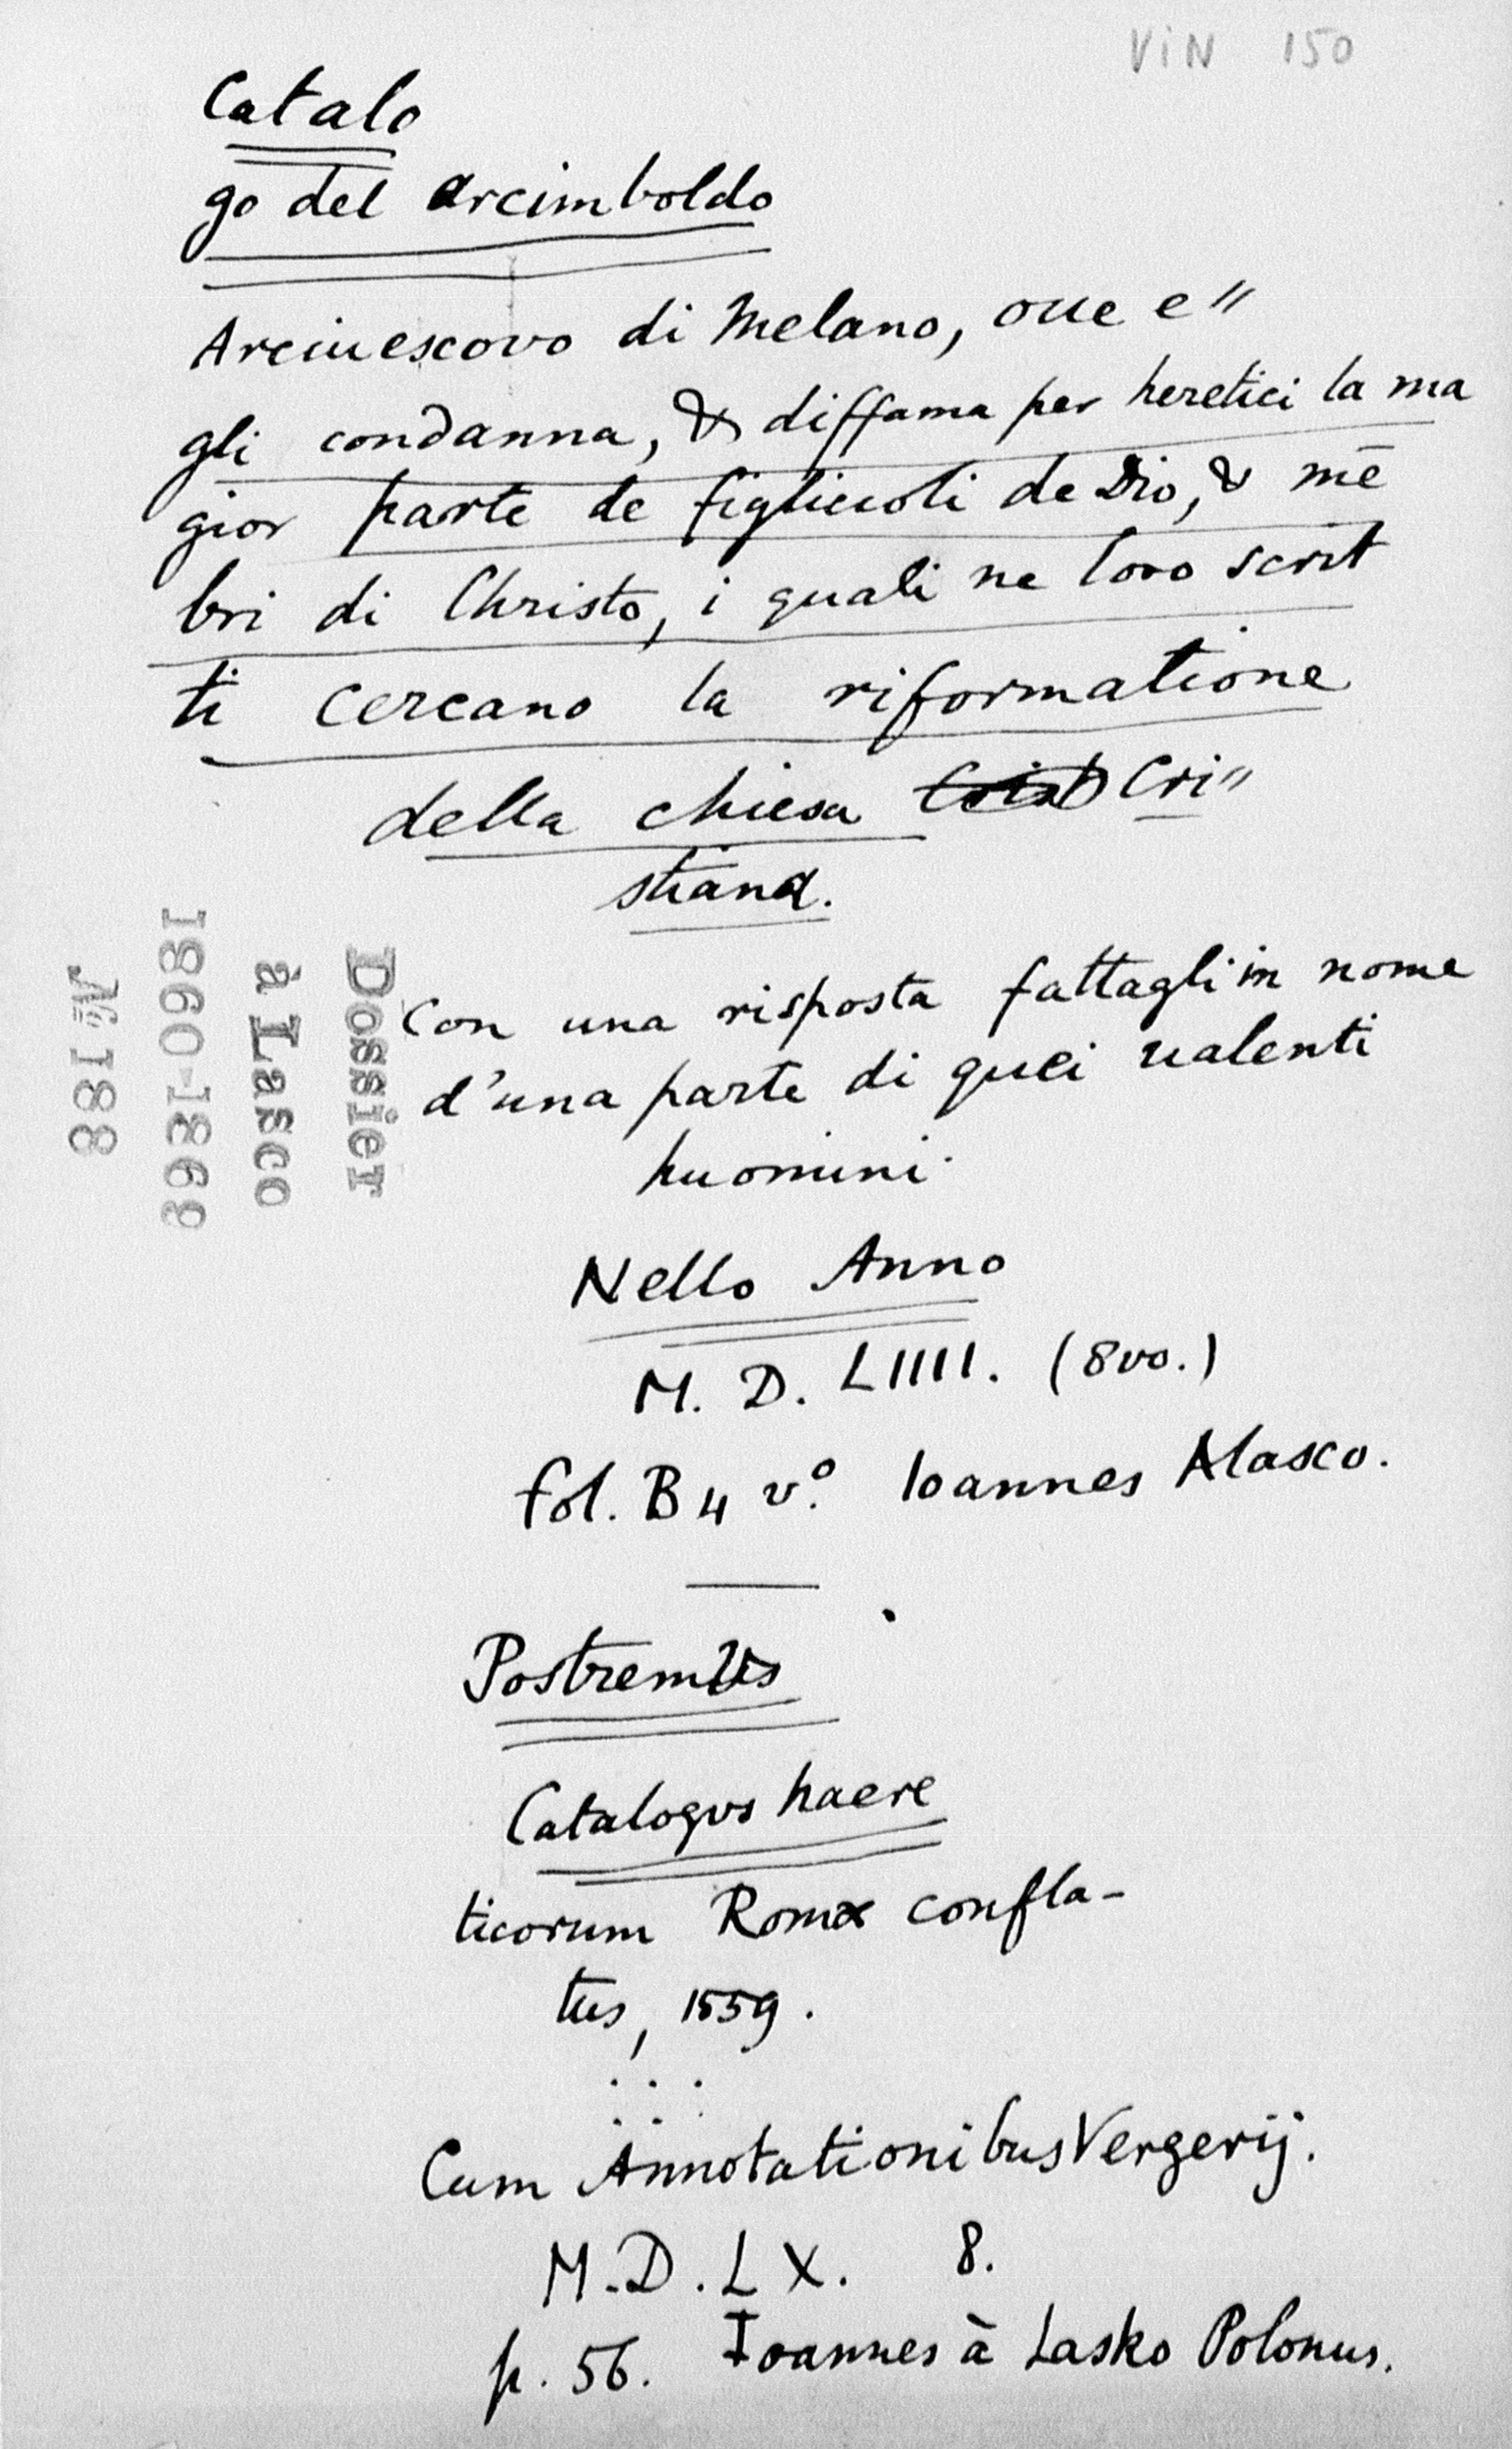 VIN 150
Catalo
go del Arcimboldo
Arciuescovo di Melano, oue e"
gli condanna, & diffama per heretici la ma
gior parte de figliuoli de Dio, & mē
bri di Christo, i quali ne loro scrit
ti cercano la riformatione
della chiesa Cri"
stiana.
Con una risposta fattagli in nome
d'una parte di quei ualenti
huomini.
Nello Anno
M. D. LIIII. (8vo.)
fol. B4 vº. Ioannes Alasco.
Postremus
Catalogvs haere
ticorum Romæ confla-
tus, 1559.
. . .
. . .
Cum Annotationibus Vergerij.
M.D.LX. 8.
p. 56. Ioannes à Lasko Polonus.
Dossier
à Lasco
1860-1869
№ 188